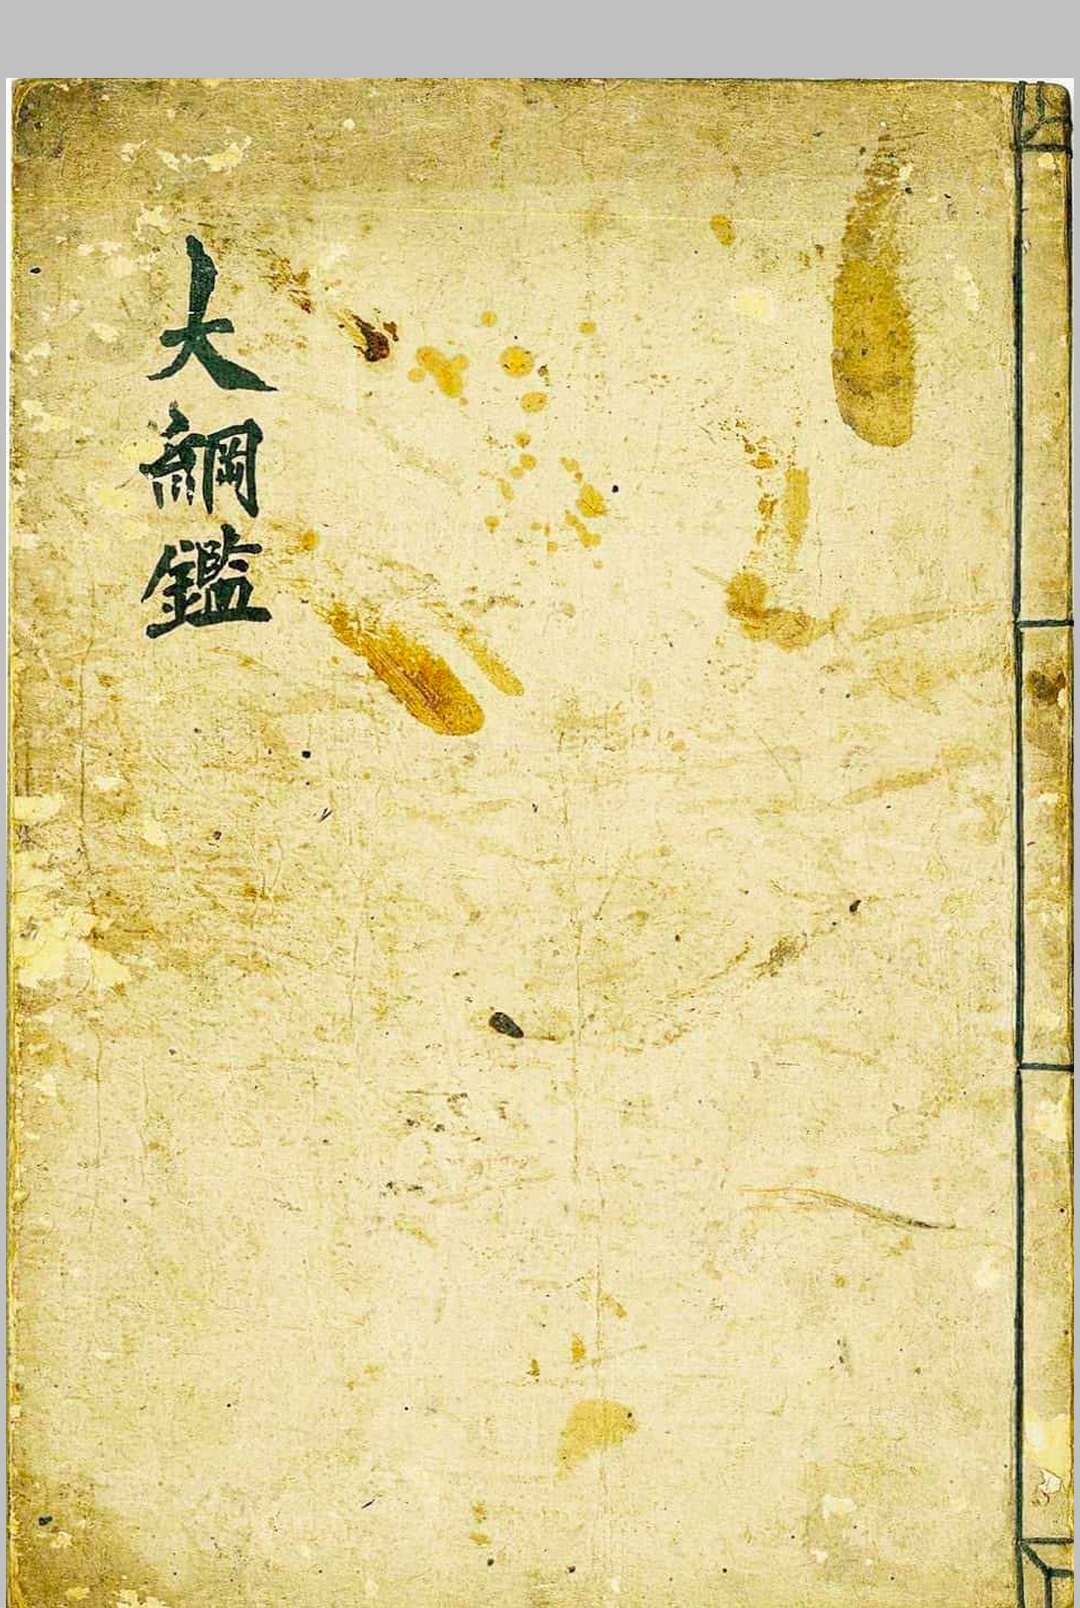 大綱鑑